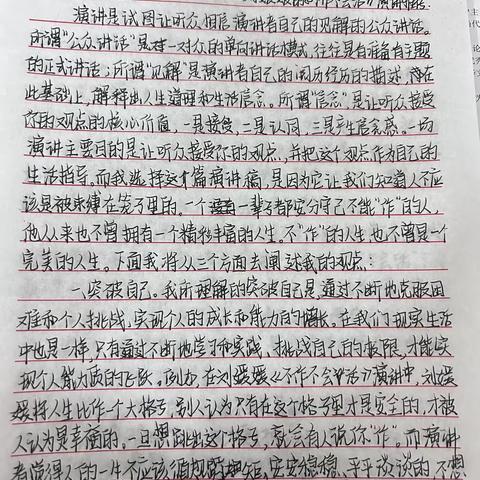 演讲是试图让听众相信演讲者自己的见解的公众讲话。
所谓“公众讲话”是对一对众的单向讲话模式,往往是有准备有主题
的正式讲话;所谓“见解”是演讲者自己的阅历经历的描述,并在
此基础上,解释出人生道理和生活信念。所谓“信念”是让听众接受
你的观点的核心价值,一是接受,二是认同,三是产生信念感。一场
演讲主要目的是让听众接受你的观点,并把这个观点作为自己的
生活指导。而我选择这篇演讲稿,是因为它让我们知道人不应
该是被束缚在笼子里的。一个一辈子都安分守己不能“作”的人,
他从来也不曾拥有一个精彩丰富的人生。不“作”的人生也不曾是一个
完美的人生。下面我将从三个方面去阐述我的观点:
一、突破自己。我所理解的突破自己是,通过不断地克服困
难和个人挑战,实现个人的成长和能力的增长。在我们现实生活
中也是一样,只有通过不断地学习和实践,挑战自己的极限,才能实
现个人能力质的飞跃。例如,在刘媛媛《不作不会活》演讲中,刘媛
媛将人生比作一个大格子,别人认为只有在这个格子里才是安全的,才被
人认为是幸福的。一旦想跳出这个格子,就会有人说你“作”。而演讲
者觉得人的一生不应该循规蹈矩,安安稳稳、平平淡淡的,不想